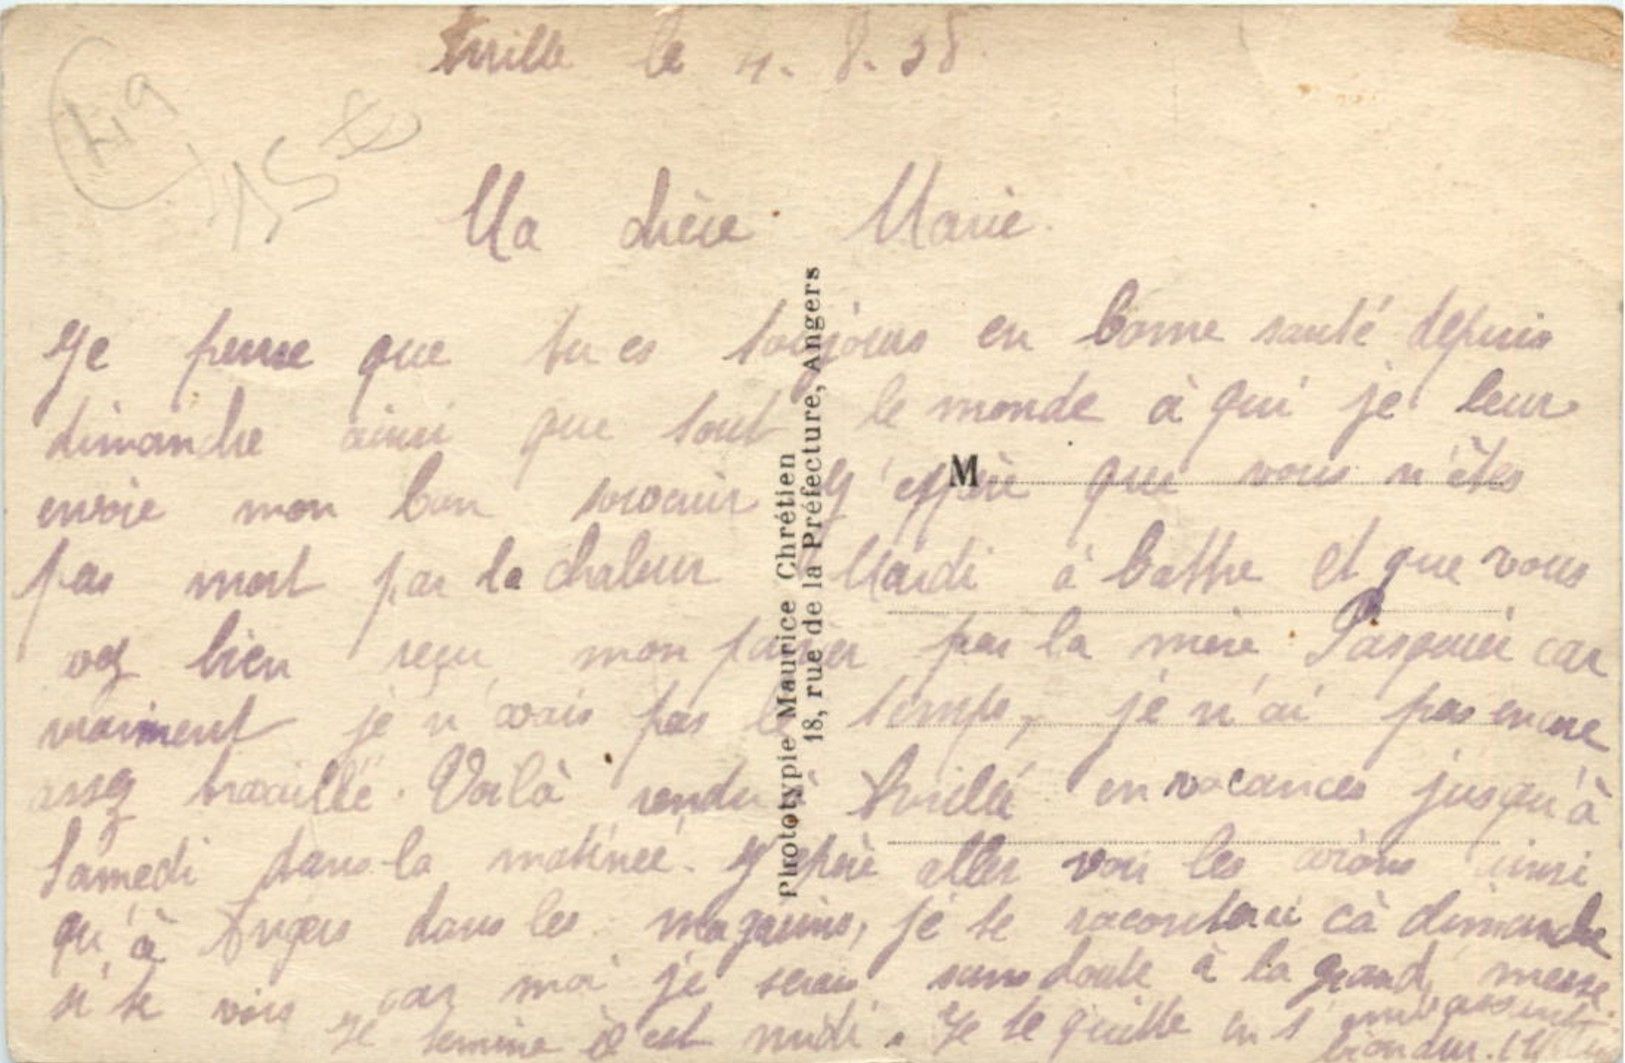 Avrillé le 4. 8. 38.
49
15
Ma chère Marie.
Je pense que tu es toujours en bonne santé depuis
dimanche ainsi que tout le monde à qui je leur
envoie mon bon souvenir J'espère que vous n'êtes
pas mort par la chaleur Mardi à battre et que vous
vez bien reçu mon panier par la mère Pasquier car
vraiment je n'avais pas le temps, je n'ai pas encore
assez travaillé. Voilà rendu à Avrillé en vacances jusqu'à
Samedi dans la matinée. J'espère aller voir les avions ainsi
qu'à Angers dans les magasins, je te raconterai cà dimanche
si te vois car moi je serais sans doute à la grand messe
Je termine il est midi. Je te quitte en t'embrassant
bien dur.
M
Phototypie Maurice Chrétien
18, rue de la Préfecture, Angers